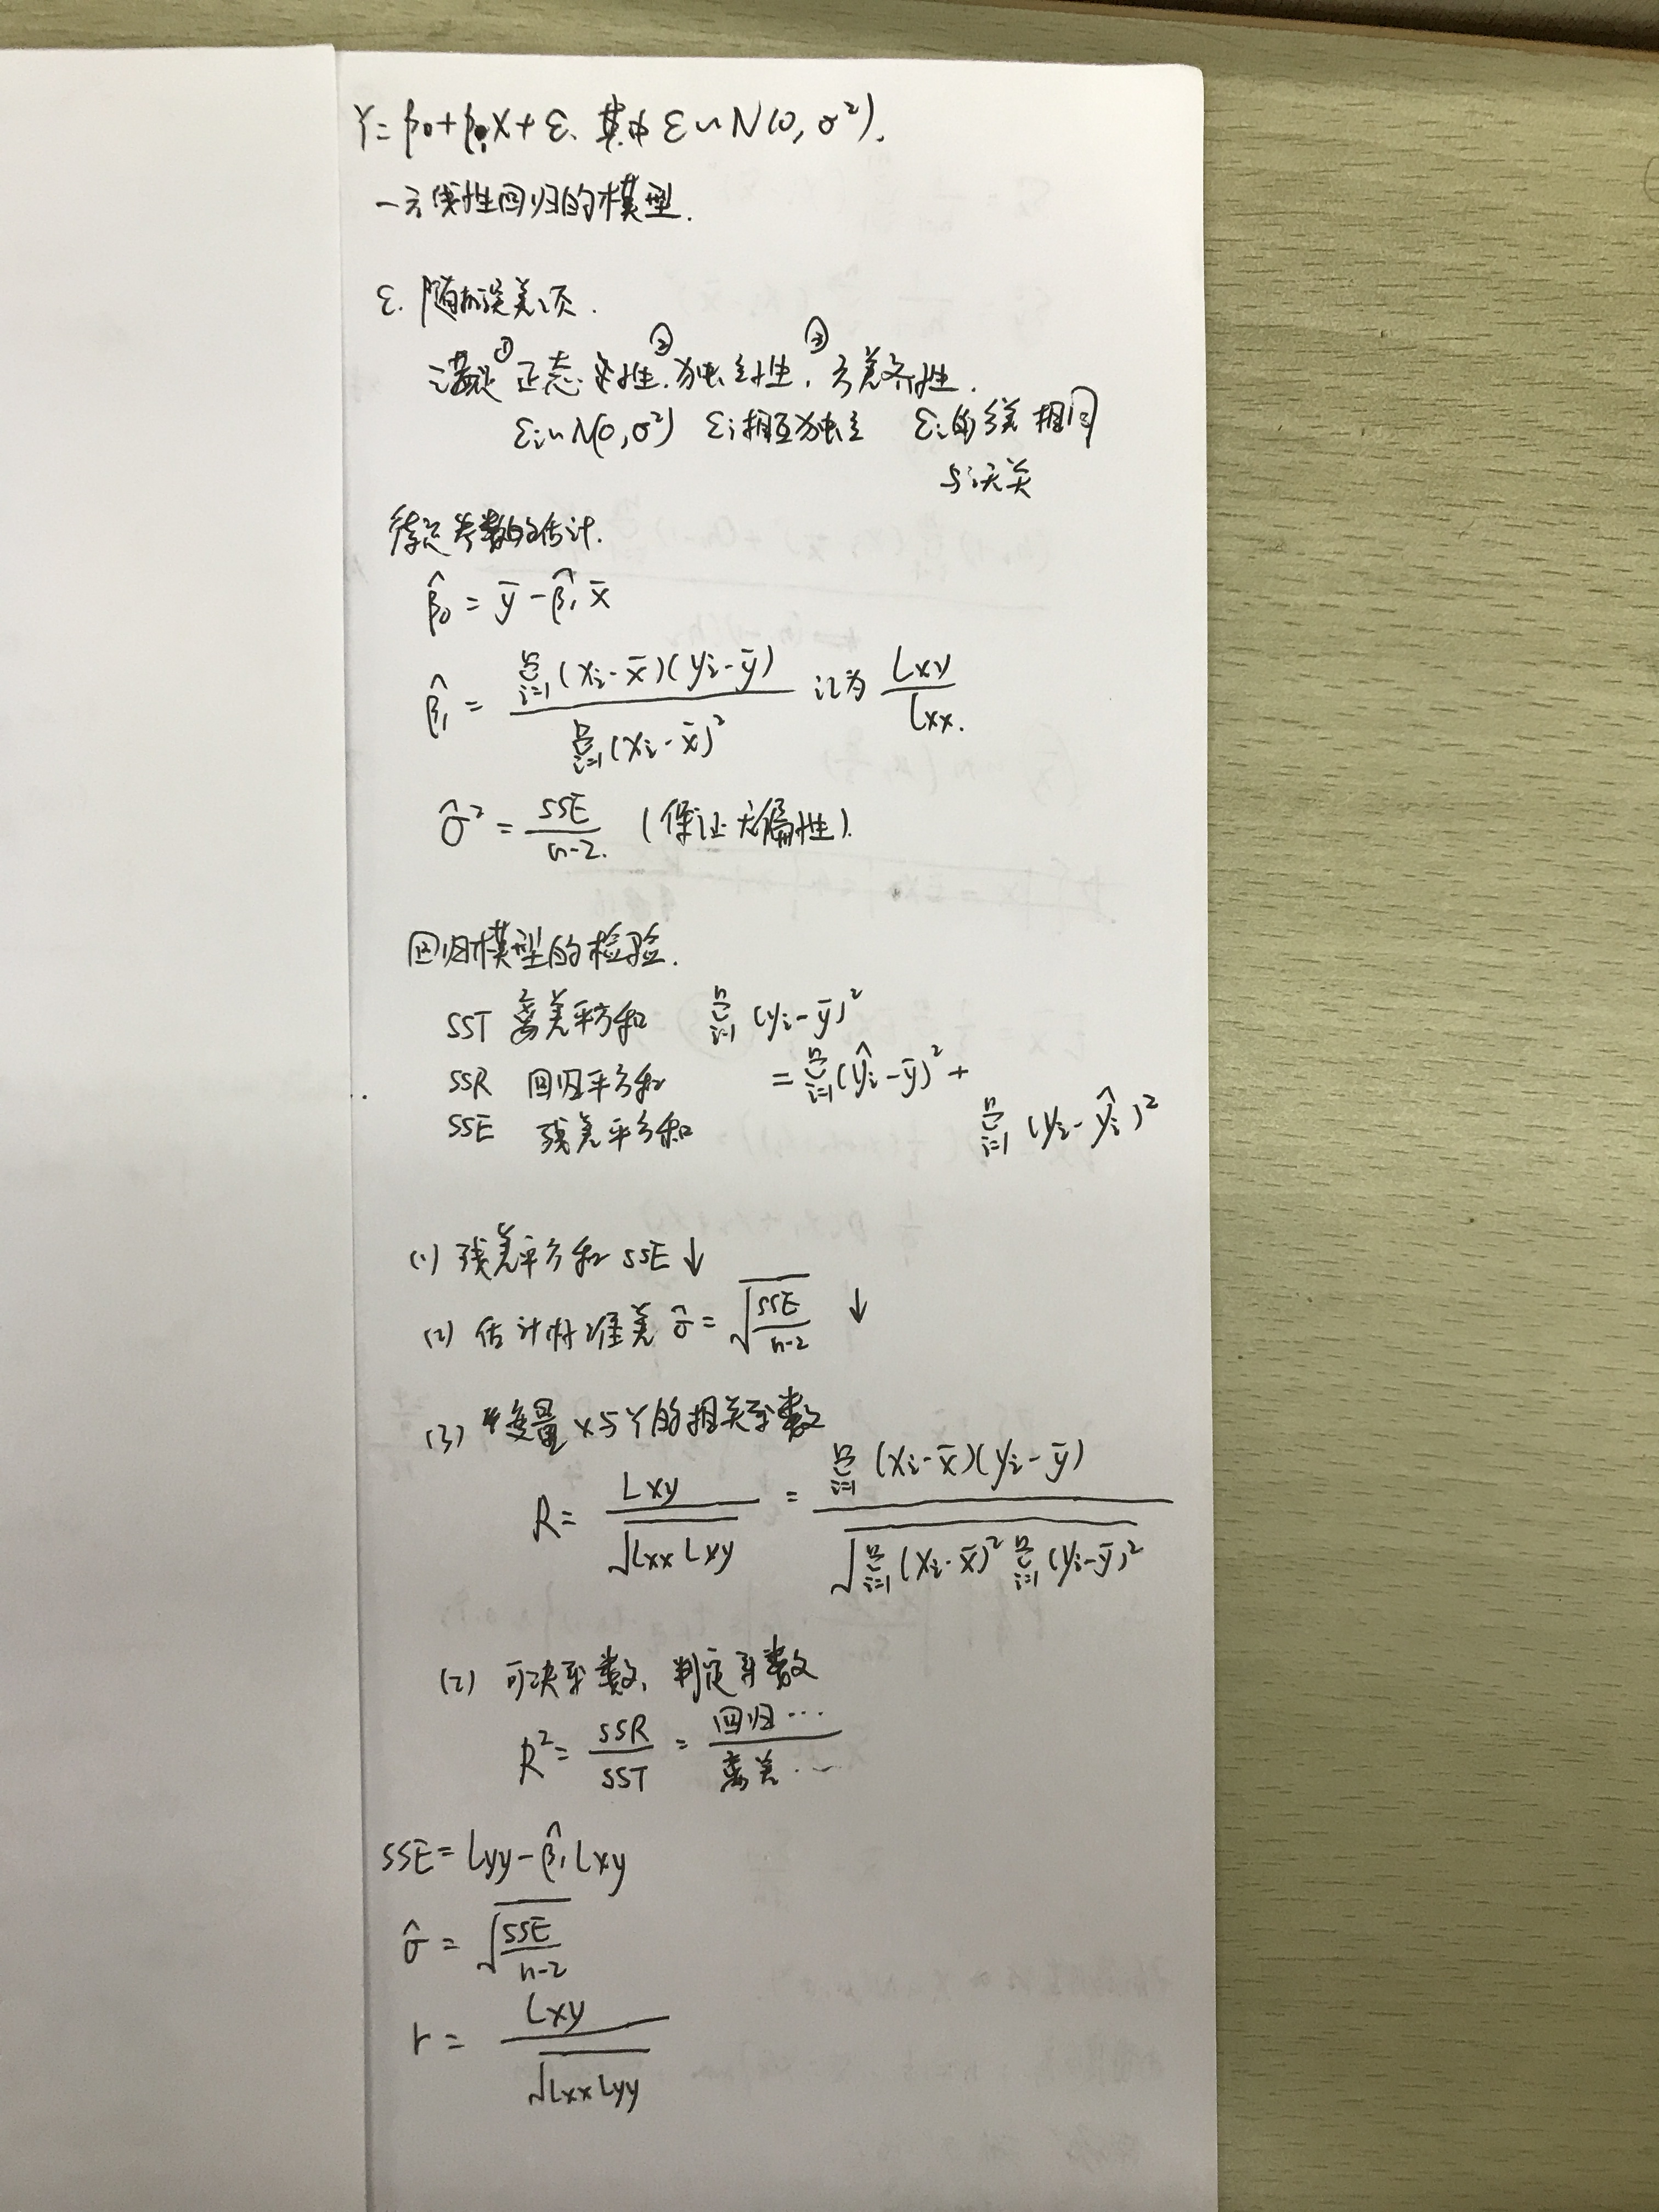 Y = β₀ + β₁X + ε. 其中 ε ~ N(0, σ²).
一元线性回归的模型.
ε. 随机误差项.
满足 ①正态性. ②独立性, ③方差齐性.
εi ~ N(0, σ²) εi相互独立 εi的方差相同
与i无关
待定参数的估计.
β̂₀ = ȳ - β̂₁x̄
β̂₁ = Σᵢ₌₁ⁿ(xi - x̄)(yi - ȳ) / Σᵢ₌₁ⁿ(xi - x̄)² 记为 Lxy / Lxx.
σ̂² = SSE / n-2. (保证无偏性).
回归模型的检验.
SST 离差平方和 Σᵢ₌₁ⁿ (yi - ȳ)²
SSR 回归平方和 = Σᵢ₌₁ⁿ(ŷi - ȳ)² +
SSE 残差平方和 Σᵢ₌₁ⁿ (yi - ŷi)²
(1) 残差平方和 SSE ↓
(2) 估计标准差 σ̂ = √(SSE / n-2) ↓
(3) 变量 X与Y的相关系数
R = Lxy / √(Lxx Lxy) = Σᵢ₌₁ⁿ (xi - x̄)(yi - ȳ) / √(Σᵢ₌₁ⁿ(xi - x̄)² Σᵢ₌₁ⁿ(yi - ȳ)²)
(2) 可决系数, 判定系数
R² = SSR / SST = 回归… / 离差…
SSE = Lyy - β̂₁Lxy
σ̂ = √(SSE / n-2)
r = Lxy / √(Lxx Lyy)